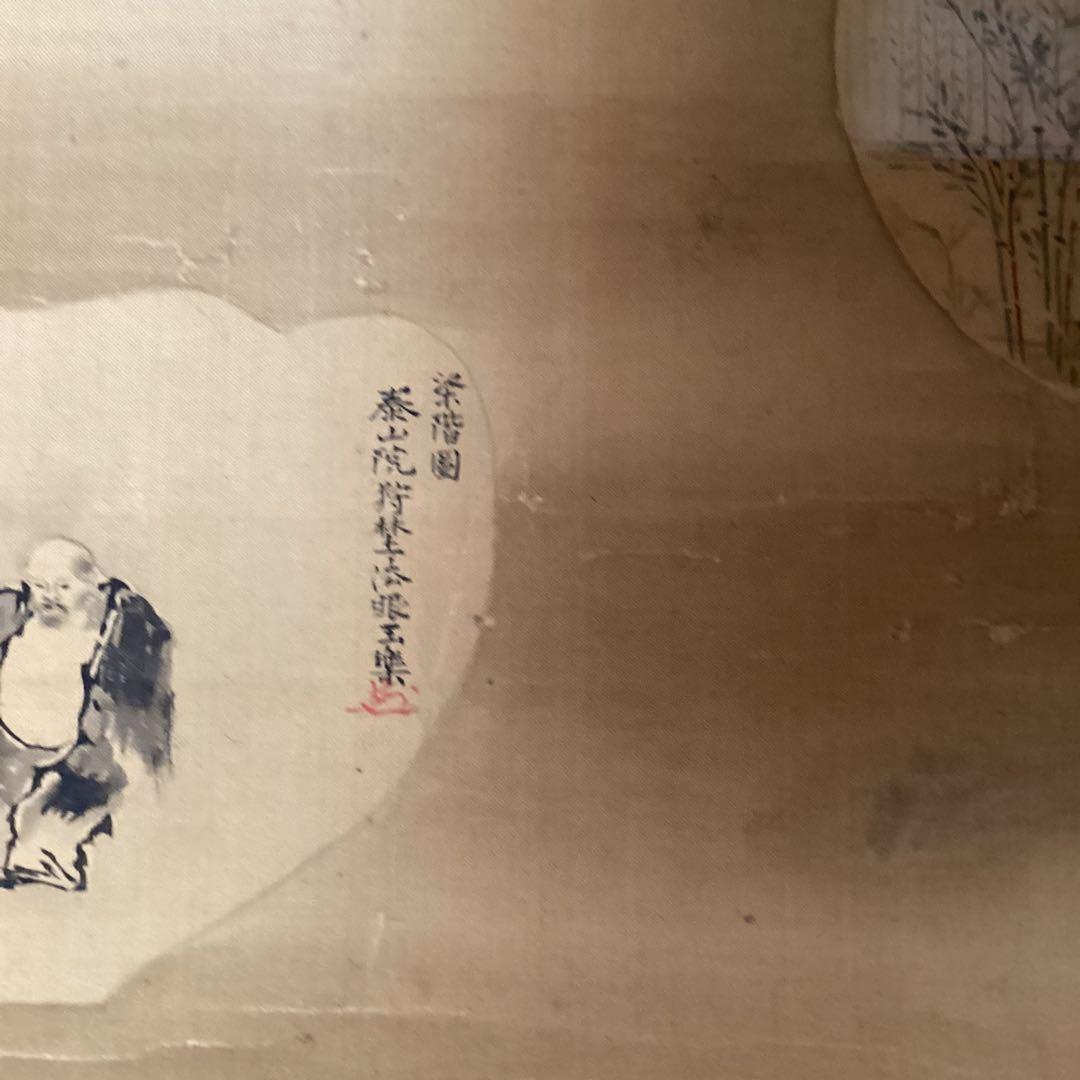 梁階圖
泰山院狩埜法眼玉樂